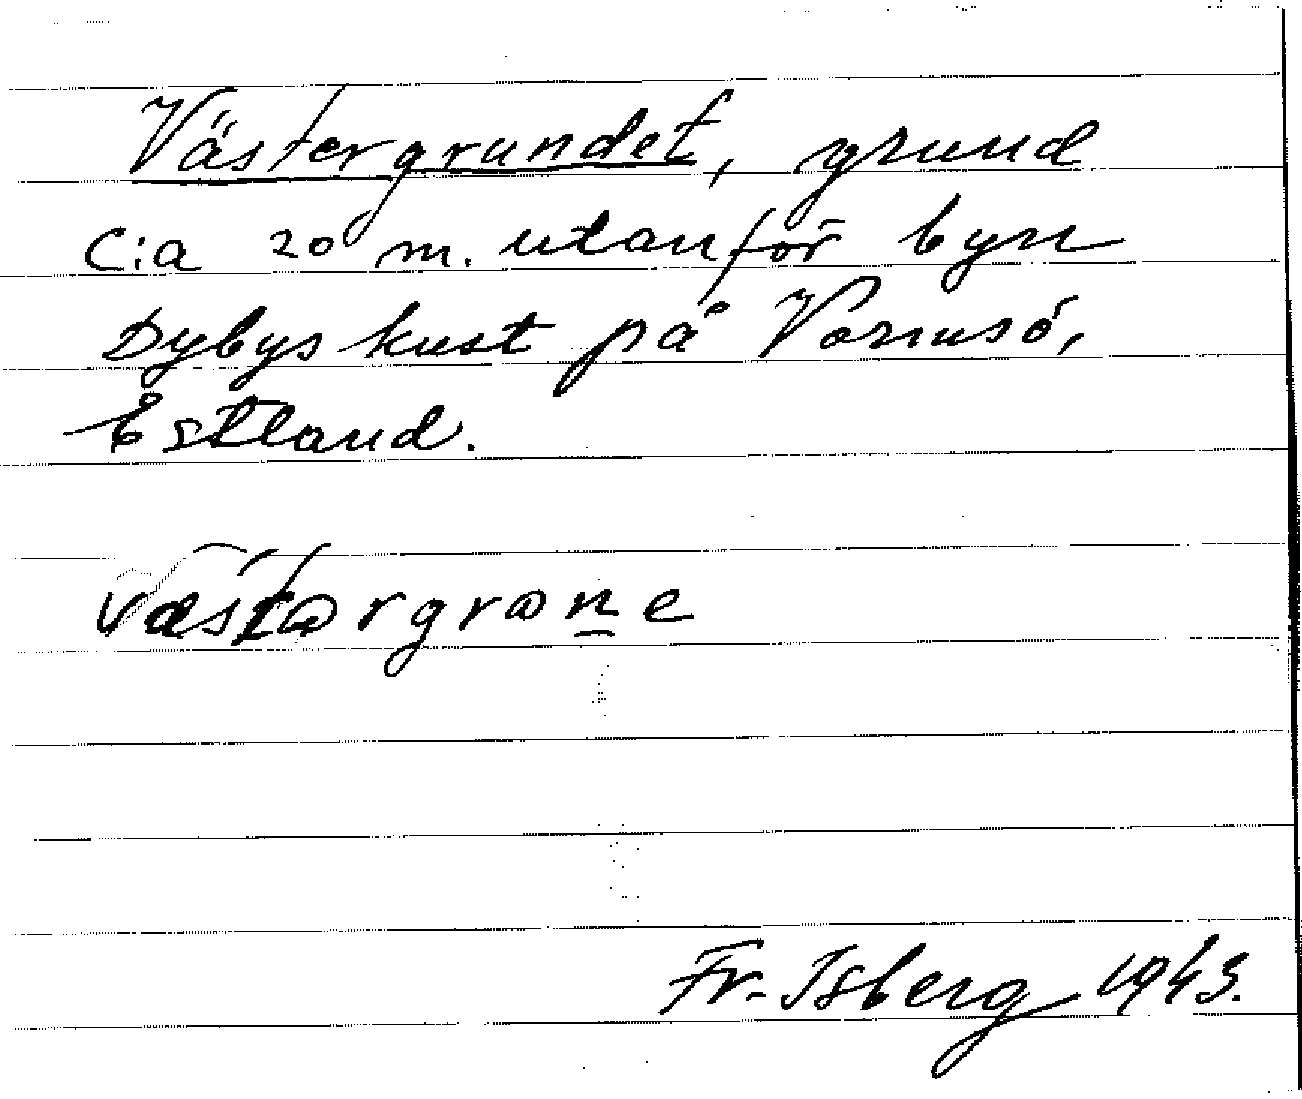 Västergrundet, grund
c:a 20 m. utanför byn
Dybys kust på Vormsö,
Estland.
Fr. Isberg 1943.